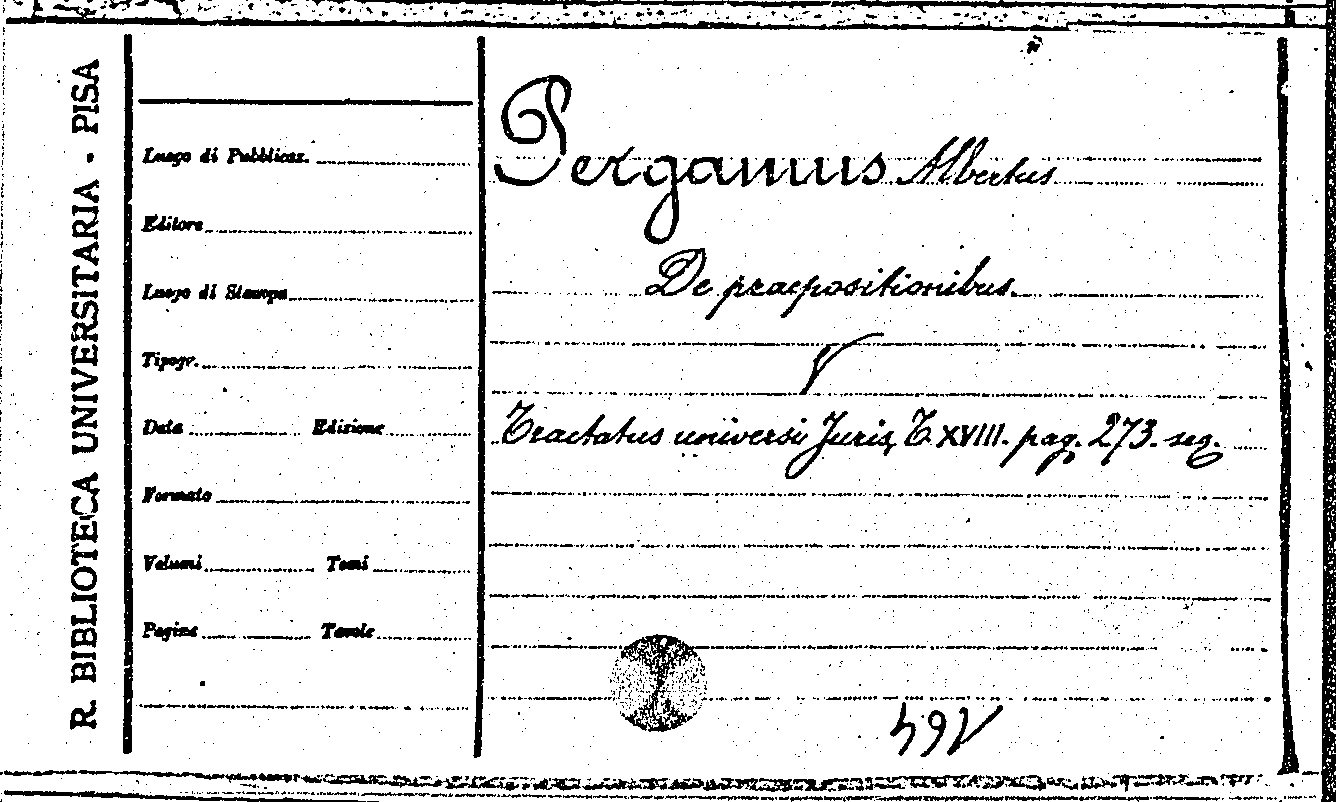 R. BIBLIOTECA UNIVERSITARIA - PISA
Luogo di Pubblicaz.
Editore
Luogo di Stampa
Tipogr.
Data Edizione
Formato
Volumi Tomi
Pagine Tavole
Pergamus Albertus
De praepositionibus
Tractatus universi Juris T. XVIII. pag. 273. seg.